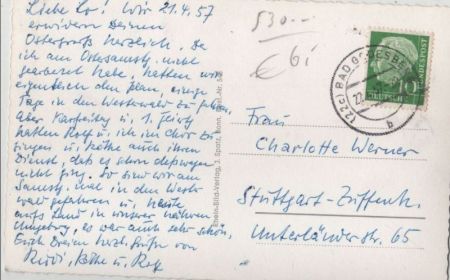 Liebe Lo! Wir 21.4.57
erwidern Deinen
Ostergruß herzlich. Da
ich am Ostersamstg. nicht
gearbeitet habe, hatten wir
eigentlich den Plan, einige
Tage in den Westerwald zu fahren,
aber Karfreitag u. 1. Feiertg
hatten Rolf u. ich im Chor zu
singen u. Käthe auch ihren
Dienst, daß es schon deswegen
nicht ging. So sind wir am
Samstg. mal in den Wester
wald gefahren u. heute
aufs Land in unserer näheren
Umgebung, es war auch sehr schön.
Euch Dreien herzl. Grüße von
Käthe u. Rolf
530.--
€ 6,-
Rhein-Bild-Verlag, J. Spatz, Bonn
(22c) BAD GODESBERG
b
DEUTSCHE BUNDESPOST
10
Frau
Charlotte Werner
Stuttgart-Zuffenh.
Unterländerstr. 65